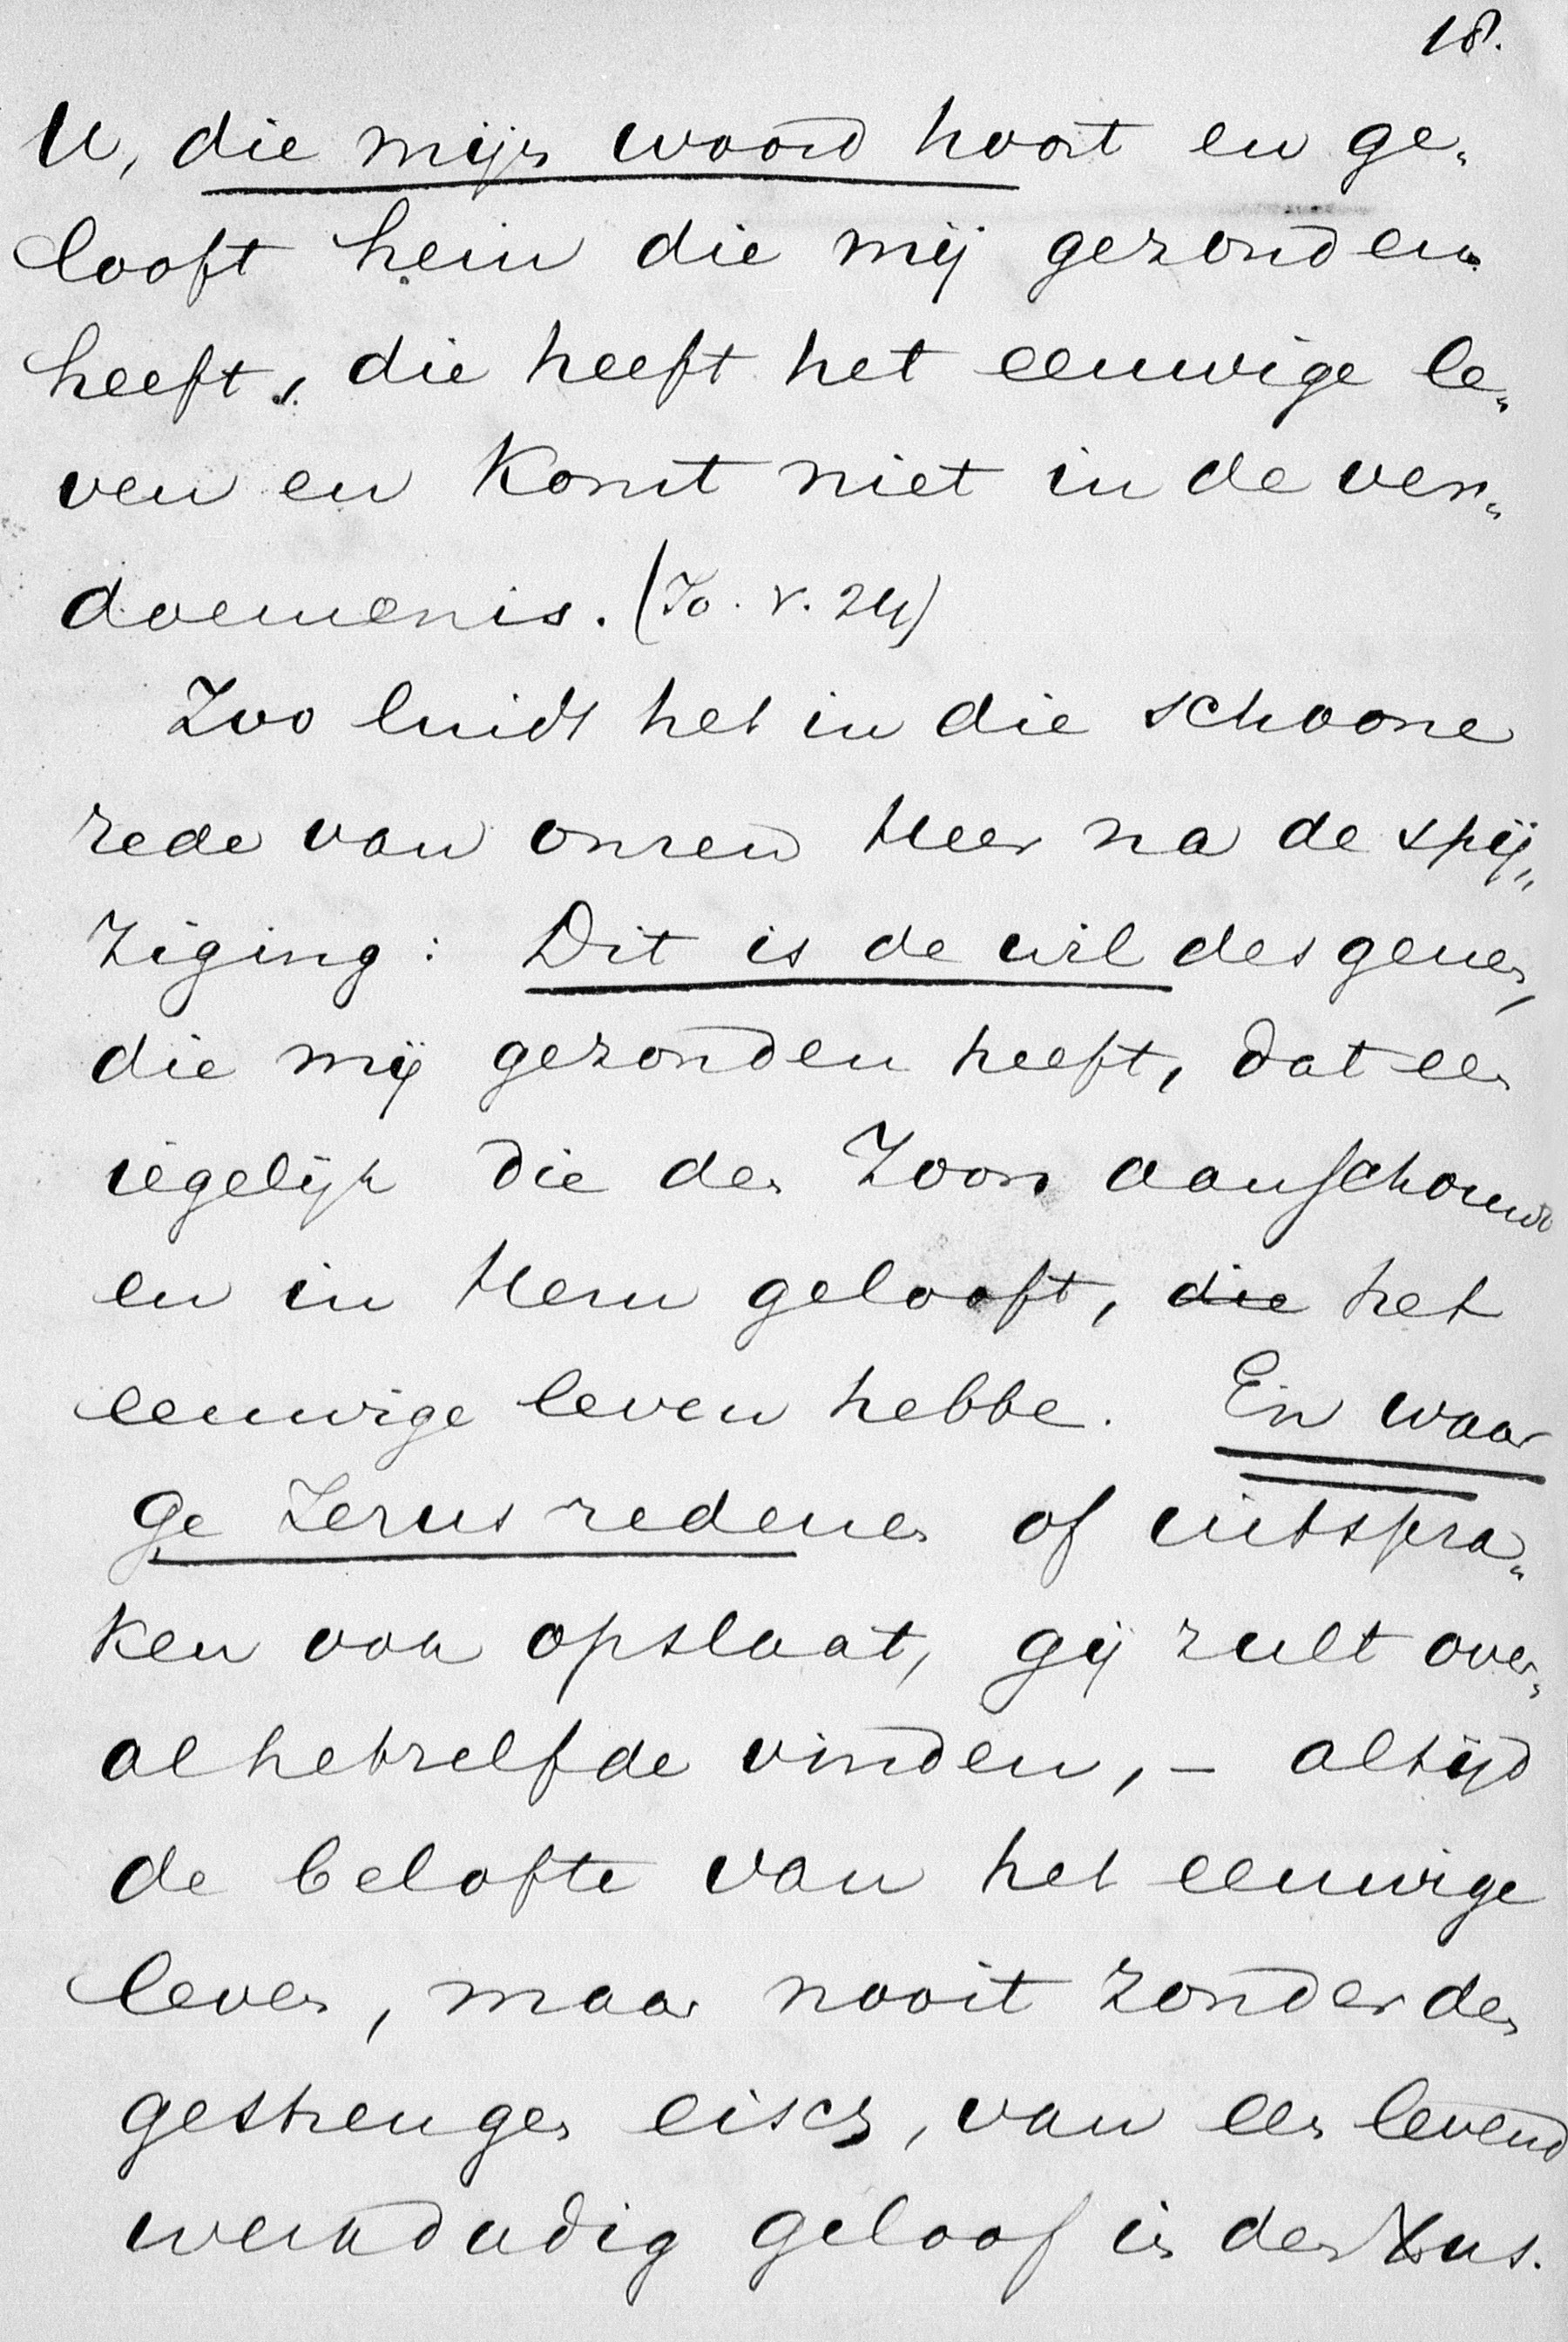 18.
U, die mijn woord hoort en ge„
looft hem die mij gezonden
heeft, die heeft het eeuwige le„
ven en komt niet in de ver„
doemenis. (Jo. V. 24)
Zoo luidt het in die schoone
rede van onzen Heer na de spij„
ziging: Dit is de wil desgenen,
die mij gezonden heeft, dat een
iegelijk die den Zoon aanschouwt
en in Hem gelooft, die het
eeuwige leven hebbe. En waar
ge Jezus redenen of uitspra„
ken ook opslaat, gij zult over„
al hetzelfde vinden, – altijd
de belofte van het eeuwige
leven, maar nooit zonder den
gestrengen eisch, van een levend
werkdadig geloof in den Xus.